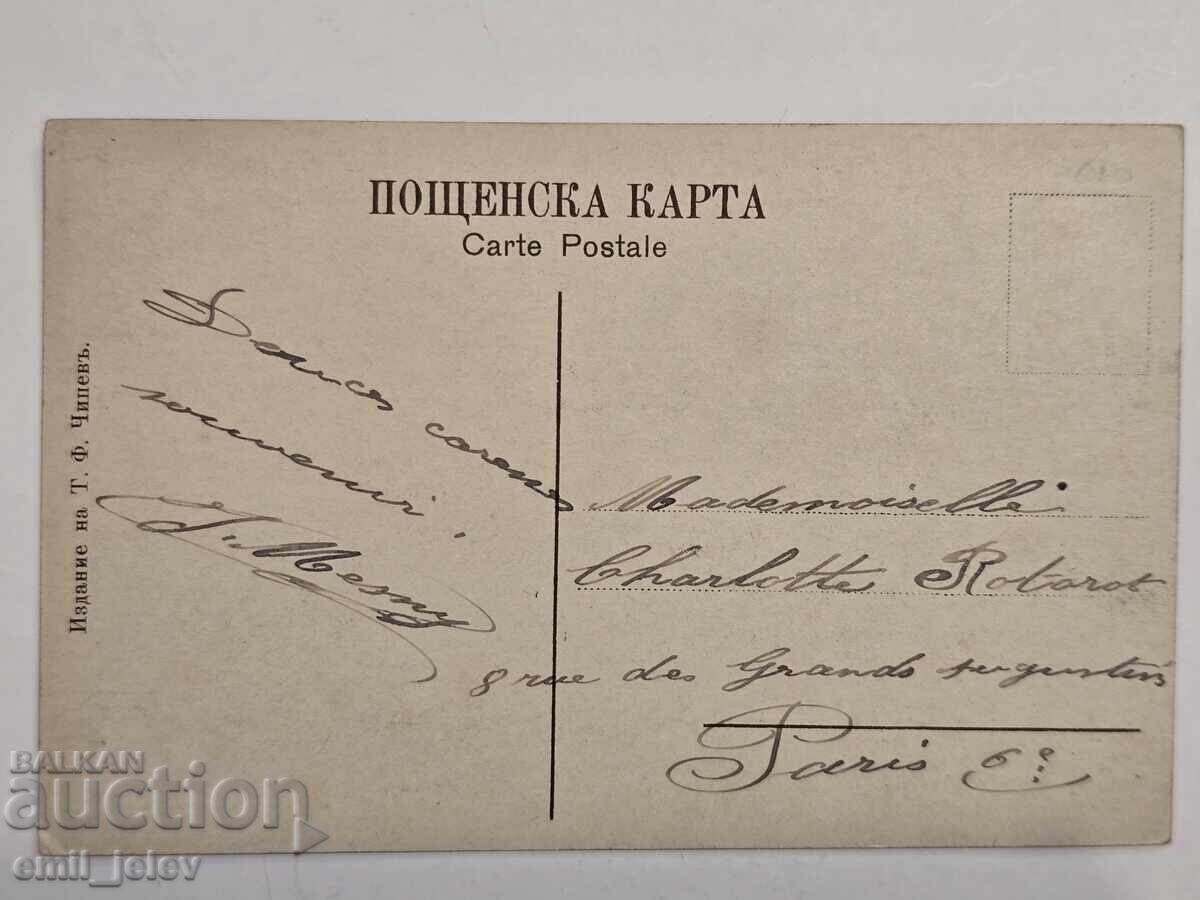 ПОЩЕНСКА КАРТА
Carte Postale
Издание на Т. Ф. Чипевъ.
Doux
souvenir.
Mesny
Mademoiselle
Charlotte Roborot
8 rue des Grands Augustins
Paris 6e
BALKAN
auction
emil_jelev